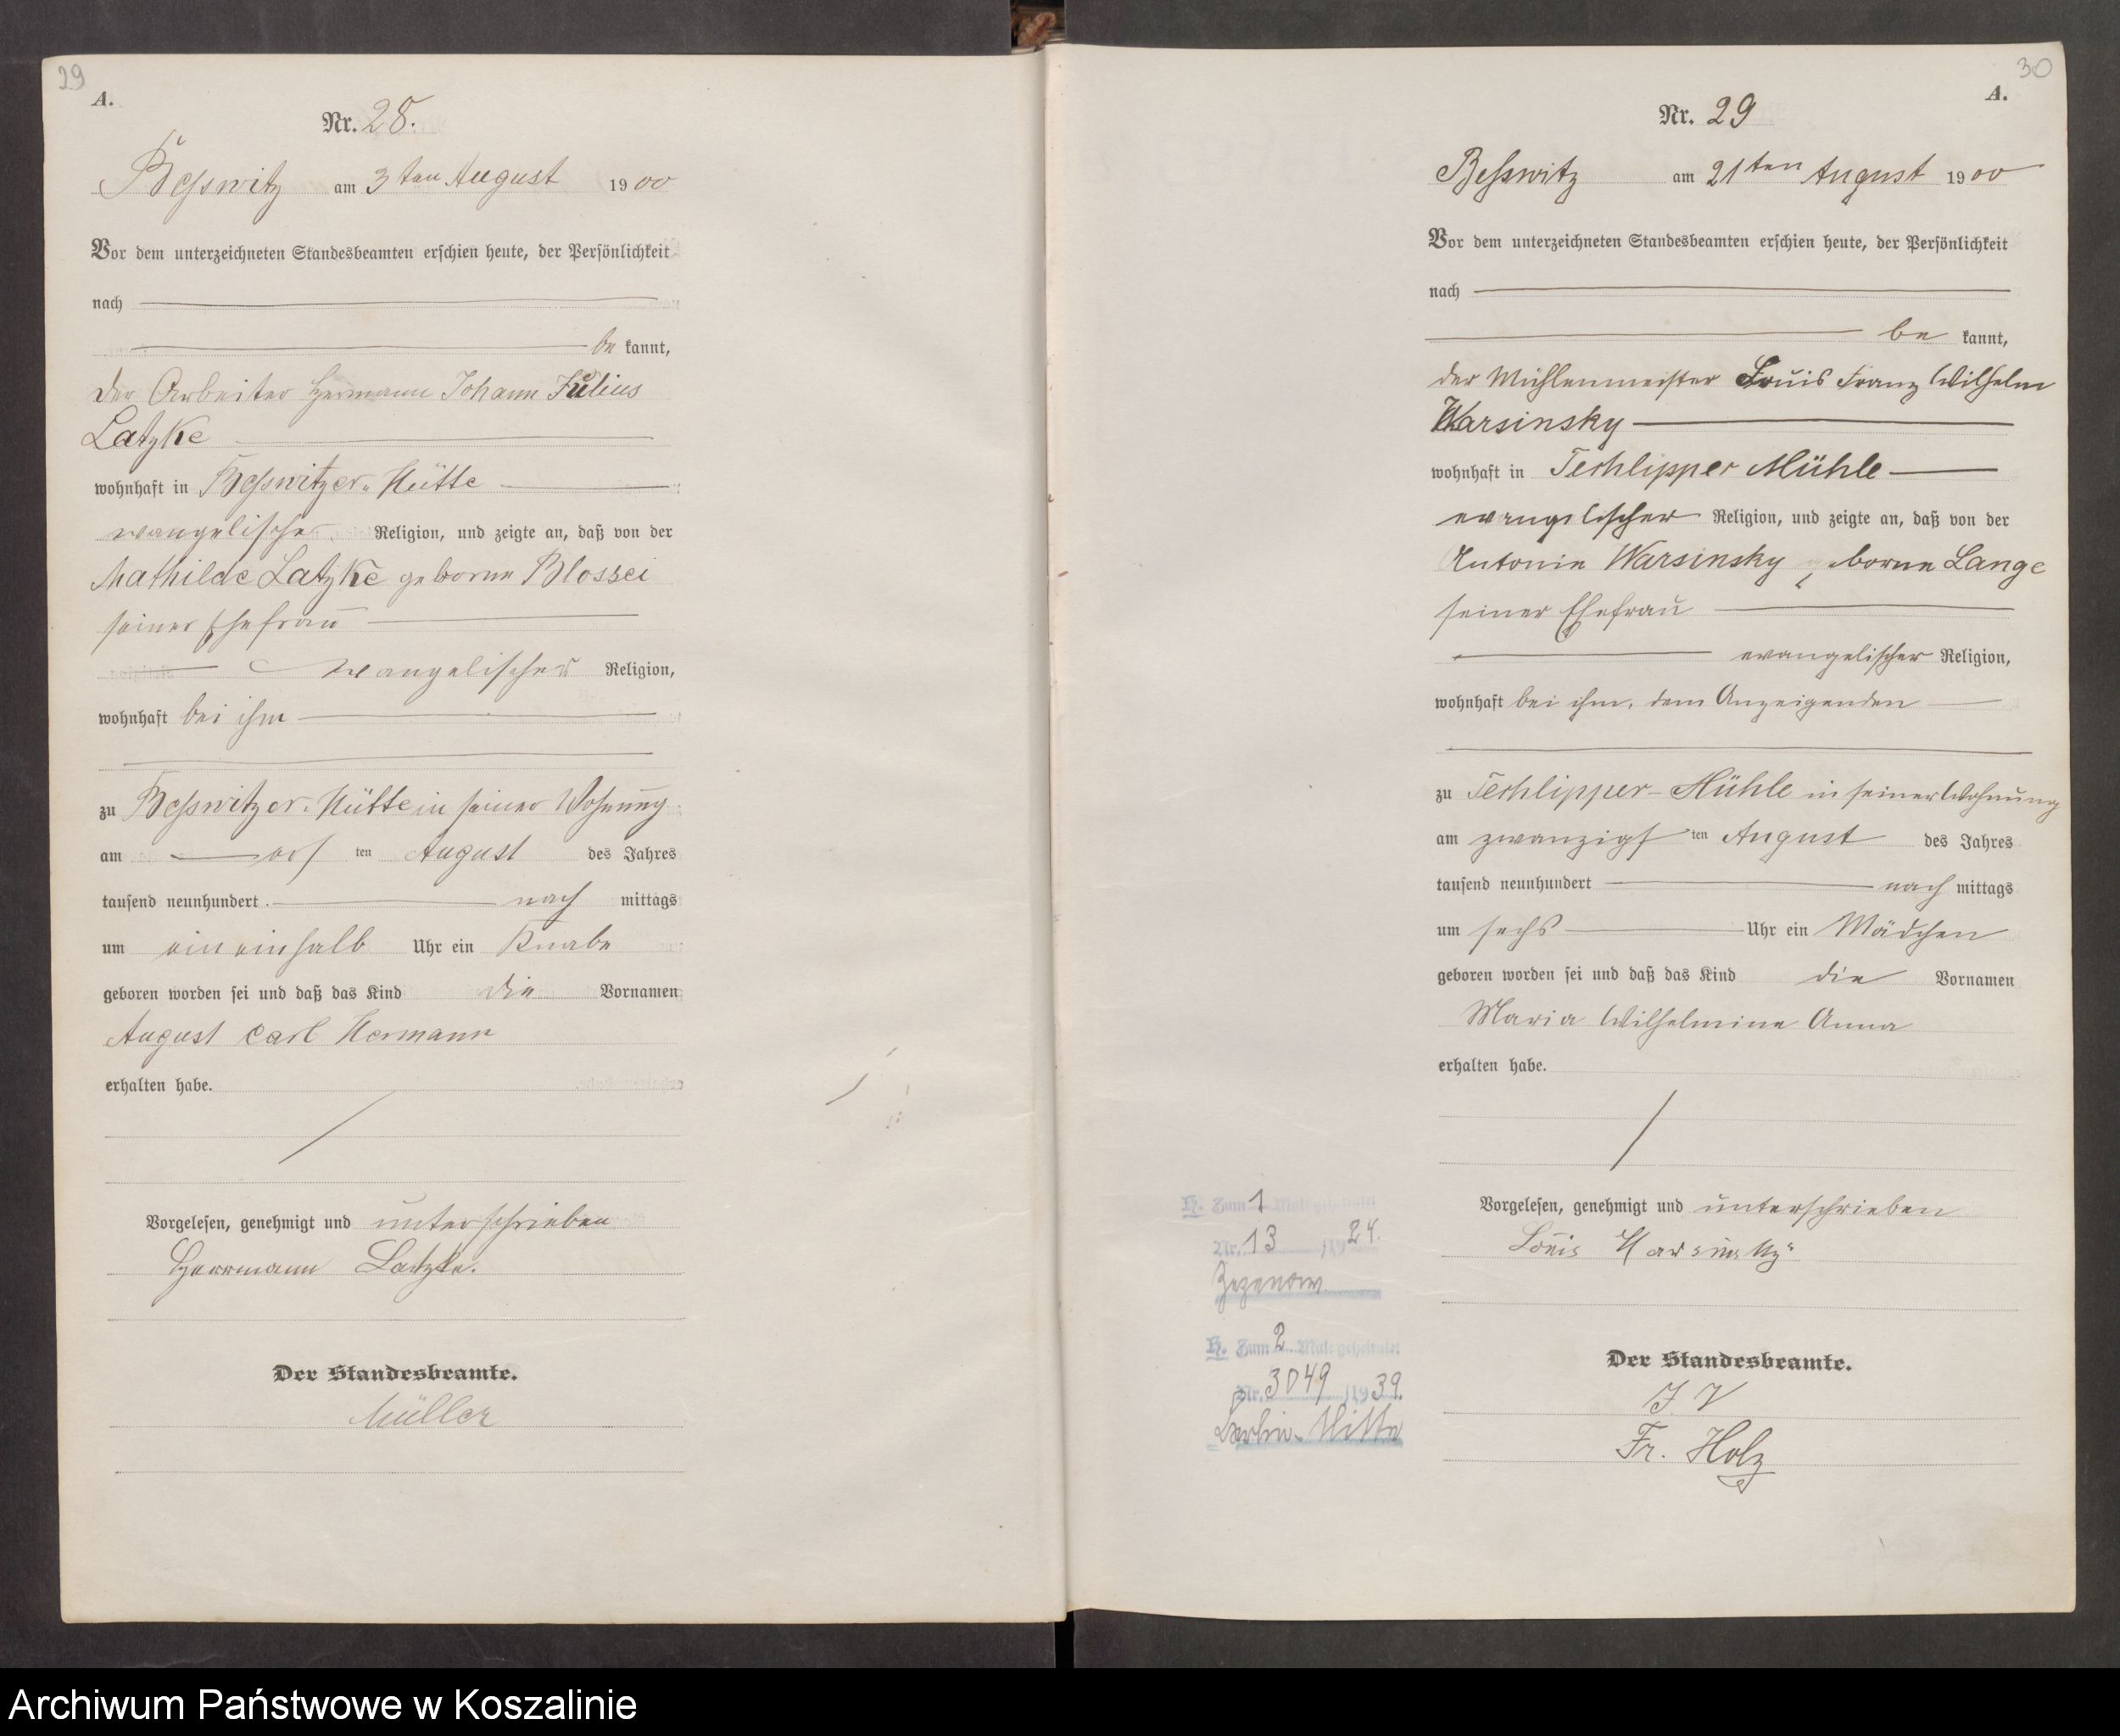 29
A.
Nr. 28.
Beßwitz am 3ten August 1900
Vor dem unterzeichneten Standesbeamten erschien heute, der Persönlichkeit
nach
be kannt,
der Arbeiter Hermann Johann Julius
Latzke
wohnhaft in Beßwitzer-Hütte
evangelischer Religion, und zeigte an, daß von der
Mathilde Latzke geborne Blossei
seiner Ehefrau
evangelischer Religion,
wohnhaft bei ihm
zu Beßwitzer-Hütte in seiner Wohnung
am ers ten August des Jahres
tausend neunhundert nach mittags
um ein einhalb Uhr ein Knabe
geboren worden sei und daß das Kind die Vornamen
August Carl Hermann
erhalten habe.
Vorgelesen, genehmigt und unterschrieben
Herrmann Latzke.
Der Standesbeamte.
Müller
30
A.
Nr. 29
Beßwitz am 21ten August 1900
Vor dem unterzeichneten Standesbeamten erschien heute, der Persönlichkeit
nach
be kannt,
der Mühlenmeister Louis Franz Wilhelm
Warsinsky
wohnhaft in Techlipper Mühle
evangelischer Religion, und zeigte an, daß von der
Antonie Warsinsky geborne Lange
seiner Ehefrau
evangelischer Religion,
wohnhaft bei ihm, dem Anzeigenden
zu Techlipper-Mühle in seiner Wohnung
am zwanzigs ten August des Jahres
tausend neunhundert nach mittags
um sechs Uhr ein Mädchen
geboren worden sei und daß das Kind die Vornamen
Maria Wilhelmine Anna
erhalten habe.
Vorgelesen, genehmigt und unterschrieben
Louis Warsinsky
Der Standesbeamte.
I. V
Fr. Holz
H. Zum 1 Male geheiratet
Nr. 13 /1924.
Zezenow
H. Zum 2. Male geheiratet
Nr. 3049 /1939.
Berlin-Mitte
Archiwum Państwowe w Koszalinie